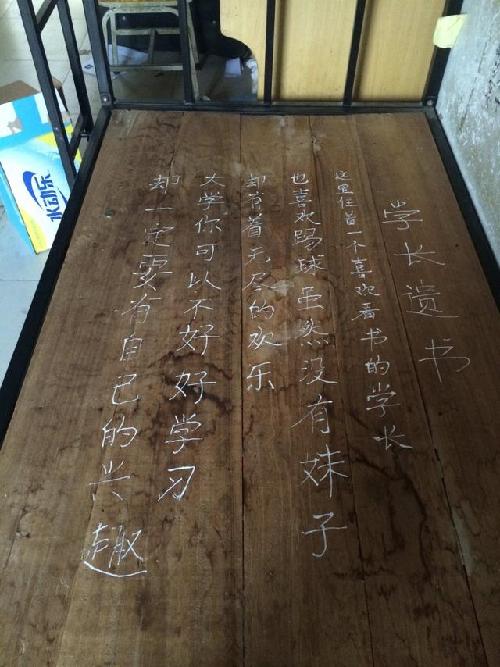 学长遗书
这里住着一个喜欢看书的学长
也喜欢踢球虽然没有妹子
却有着无尽的欢乐
大学你可以不好好学习
却一定要有自己的兴趣
水动乐